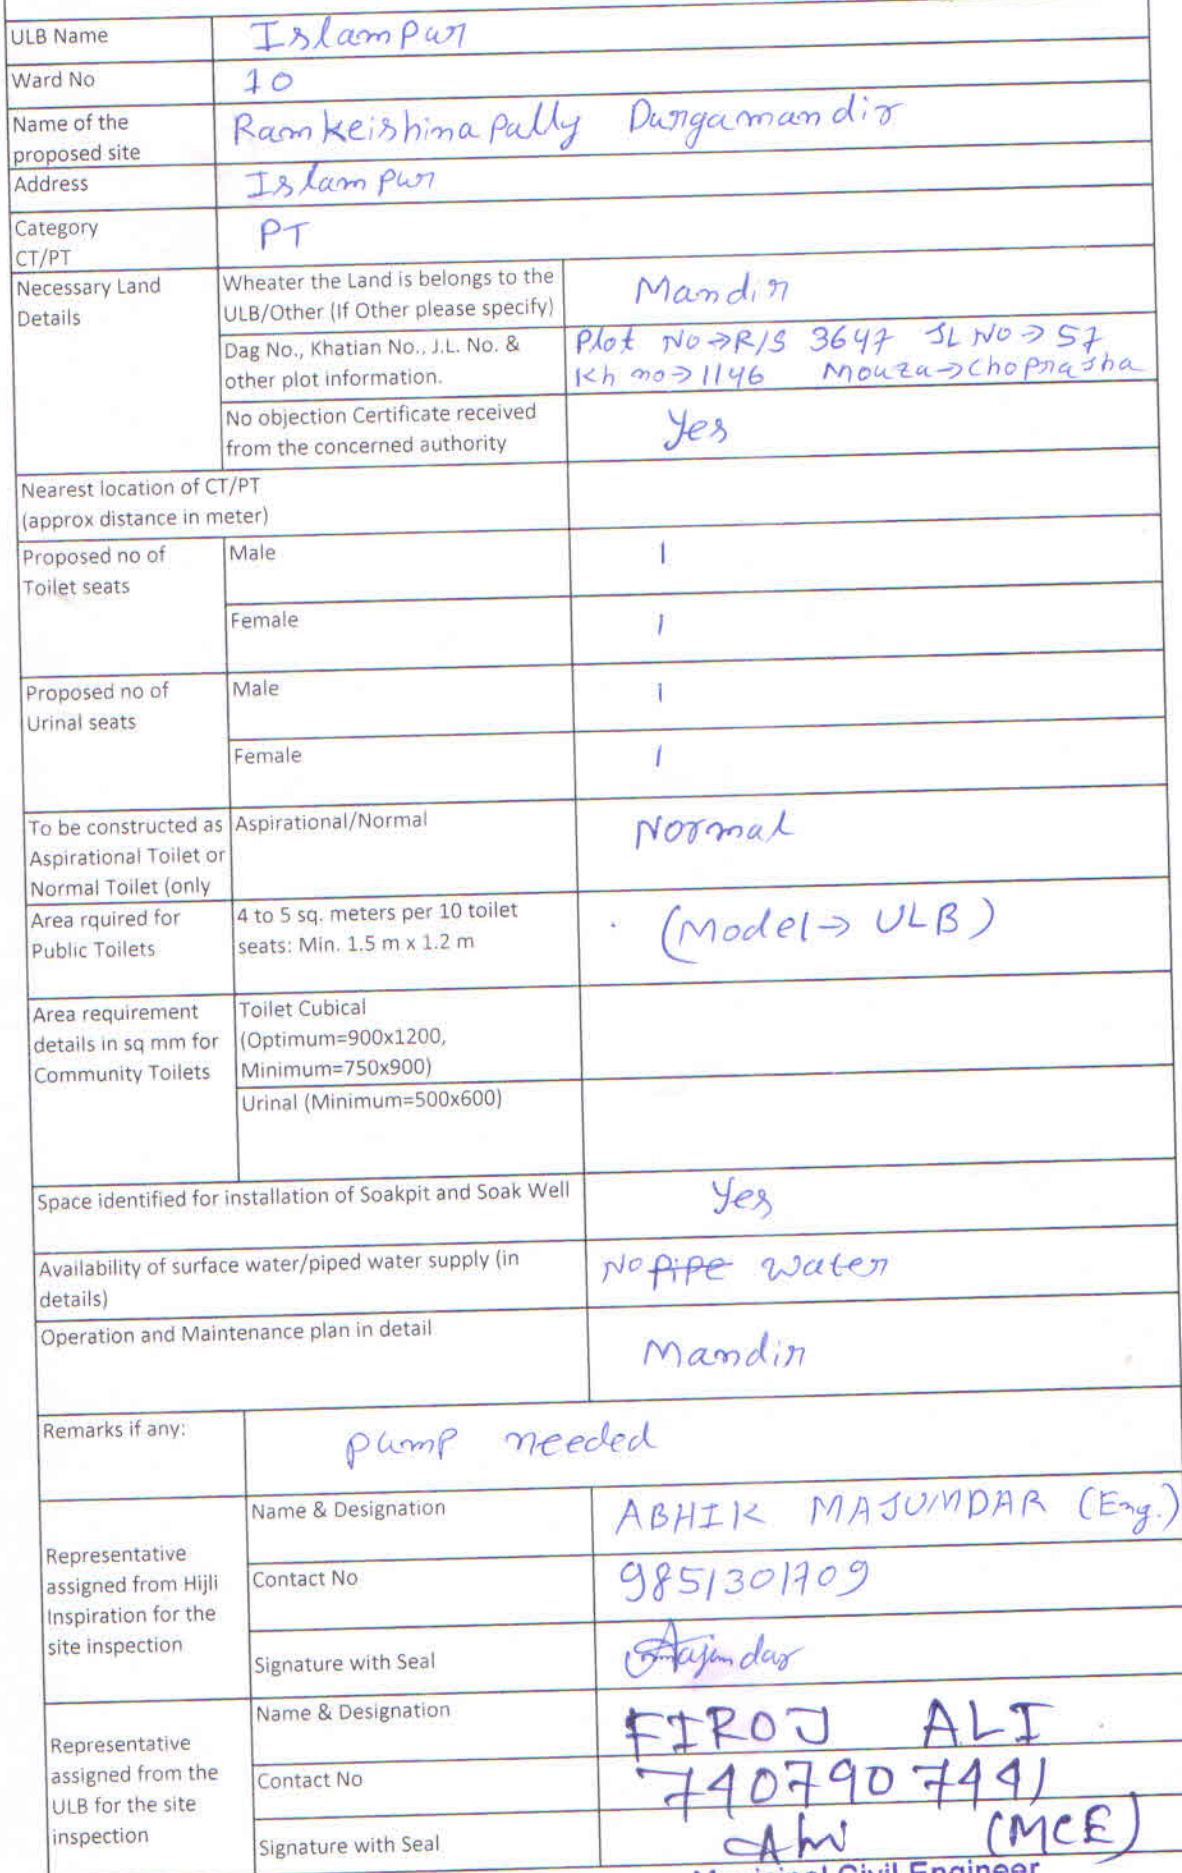 ULB Name Islampur
Ward No 10
Name of the
proposed site Ramkeishina Pally Durgamandir
Address Islampur
Category
CT/PT PT
Necessary Land
Details
Wheater the Land is belongs to the
ULB/Other (If Other please specify) Mandir
Dag No., Khatian No., J.L. No. &
other plot information.
Plot No→R/S 3647 JL NO→57
Kh no→1146 Mouza→Choprasha
No objection Certificate received
from the concerned authority Yes
Nearest location of CT/PT
(approx distance in meter)
Proposed no of
Toilet seats
Male 1
Female 1
Proposed no of
Urinal seats
Male 1
Female 1
To be constructed as
Aspirational Toilet or
Normal Toilet (only
Aspirational/Normal Normal
Area rquired for
Public Toilets
4 to 5 sq. meters per 10 toilet
seats: Min. 1.5 m x 1.2 m
(Model→ ULB)
Area requirement
details in sq mm for
Community Toilets
Toilet Cubical
(Optimum=900x1200,
Minimum=750x900)
Urinal (Minimum=500x600)
Space identified for installation of Soakpit and Soak Well Yes
Availability of surface water/piped water supply (in
details)
No pipe water
Operation and Maintenance plan in detail Mandir
Remarks if any: pump needed
Representative
assigned from Hijli
Inspiration for the
site inspection
Name & Designation ABHIK MAJUMDAR (Eng.)
Contact No 9851301709
Signature with Seal Majumdar
Representative
assigned from the
ULB for the site
inspection
Name & Designation FIROJ ALI
Contact No 7407907441
Signature with Seal (MCE)
Municipal Civil Engineer